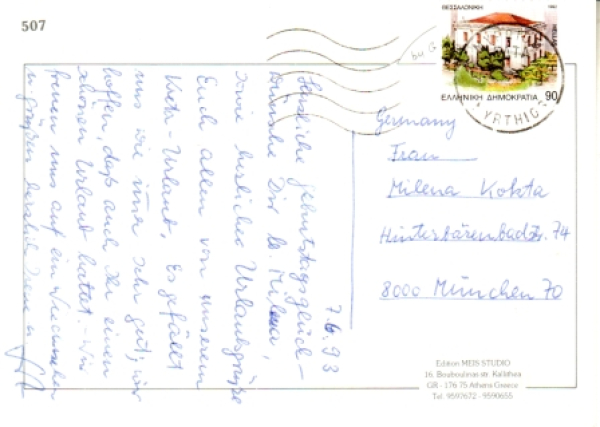 507
ΘΕΣΣΑΛΟΝΙΚΗ
ΕΛΛΗΝΙΚΗ ΔΗΜΟΚΡΑΤΙΑ 90
7.6.93
Herzliche Geburtstagsglück-
wünsche Dir lb. Milena,
sowie herzliche Urlaubsgrüße
Euch allen von unserem
Kreta-Urlaub. Es gefällt
uns wie immer sehr gut, wir
hoffen, daß auch Ihr einen
schönen Urlaub hattet. Wir
freuen uns auf ein Wiedersehen
u. grüßen herzlich
Germany
Frau
Milena Kokta
Hinterbärenbadstr. 74
8000 München 70
Edition MEIS STUDIO
16. Bouboulinas str. Kallithea
GR - 176 75 Athens Greece
Tel. 9597672 - 9590655